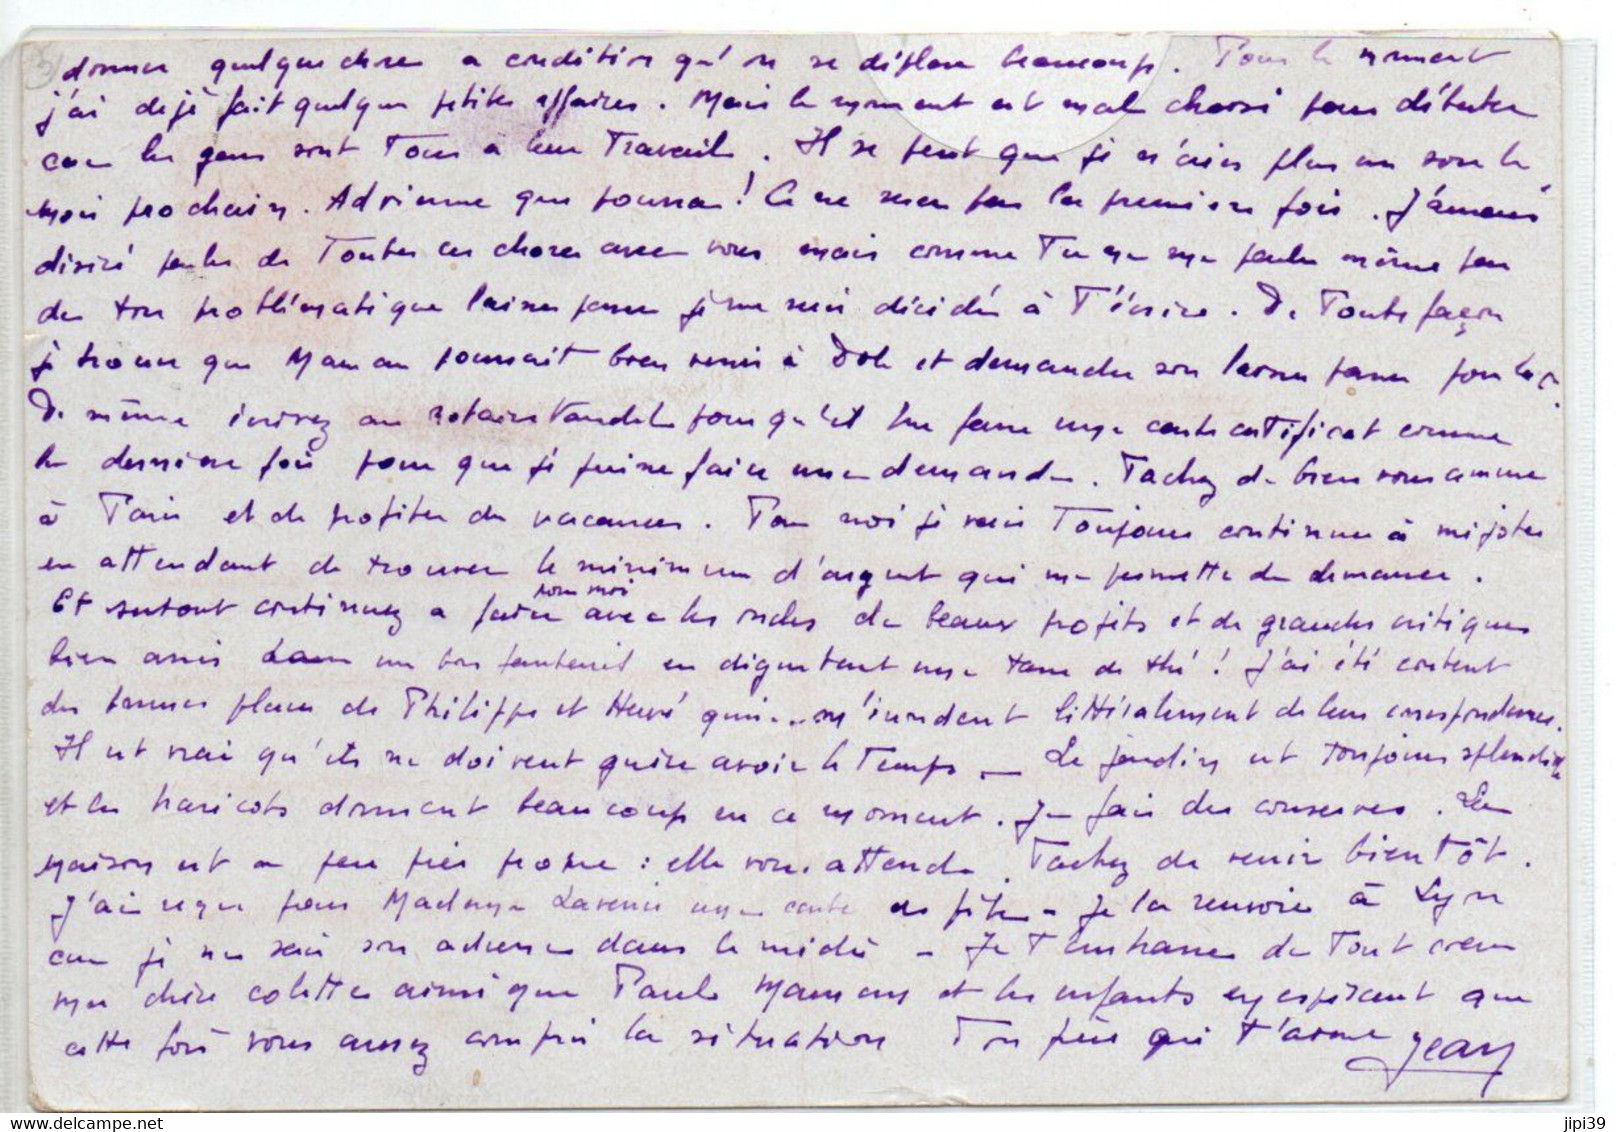 donner quelque chose a condition qu'on se déplace beaucoup. Pour le moment
j'ai dejà fait quelques petites affaires. Mais le moment est mal choisi pour débuter
car les gens sont tous à leur travail. Il se peut que je n'aies plus un sou le
mois prochain. Adrienne que pourra! Ce ne sera pas la première fois. J'aimerais
désiré parler de toutes ces choses avec vous mais comme tu ne me parles même pas
de ton problématique laisser passer je me suis décidé à t'écrire. De toute façon
je trouve que Maman pourrait bien venir à Dole et demander son laisser passer pour
De même écrivez au notaire Vandel pour qu'il me fasse une carte certificat comme
la dernière fois pour que je puisse faire une demande. Tachez de bien vous amuser
à Paris et de profiter des vacances. Pour moi je vais toujours continuer à mijoter
en attendant de trouver le minimum d'argent qui me permette de demarrer.
Et surtout continuez a faire avec les de beaux projets et de grandes critiques
pour moi
bien assis dans un bon fauteuil en digustant une tasse de thé! J'ai été content
des bonnes places de Philippe et Hervé qui... m'inondent littéralement de leur correspondance.
Il est vrai qu'ils ne doivent guère avoir le temps — Le jardin est toujours splendide
et les haricots donnent beaucoup en ce moment. Je fais des conserves. La
maison est a peu près propre : elle vous attend. Tachez de venir bientôt.
J'ai reçu pour Madame une carte de fête - Je la renvoie à Lyon
car je ne sais son adresse dans le midi - Je t'embrasse de tout coeur
ma chère Colette ainsi que Paule Maman et les enfants en espérant que
cette fois vous aurez compris la situation Ton père qui t'aime Jean
© www.delcampe.net
jipi39